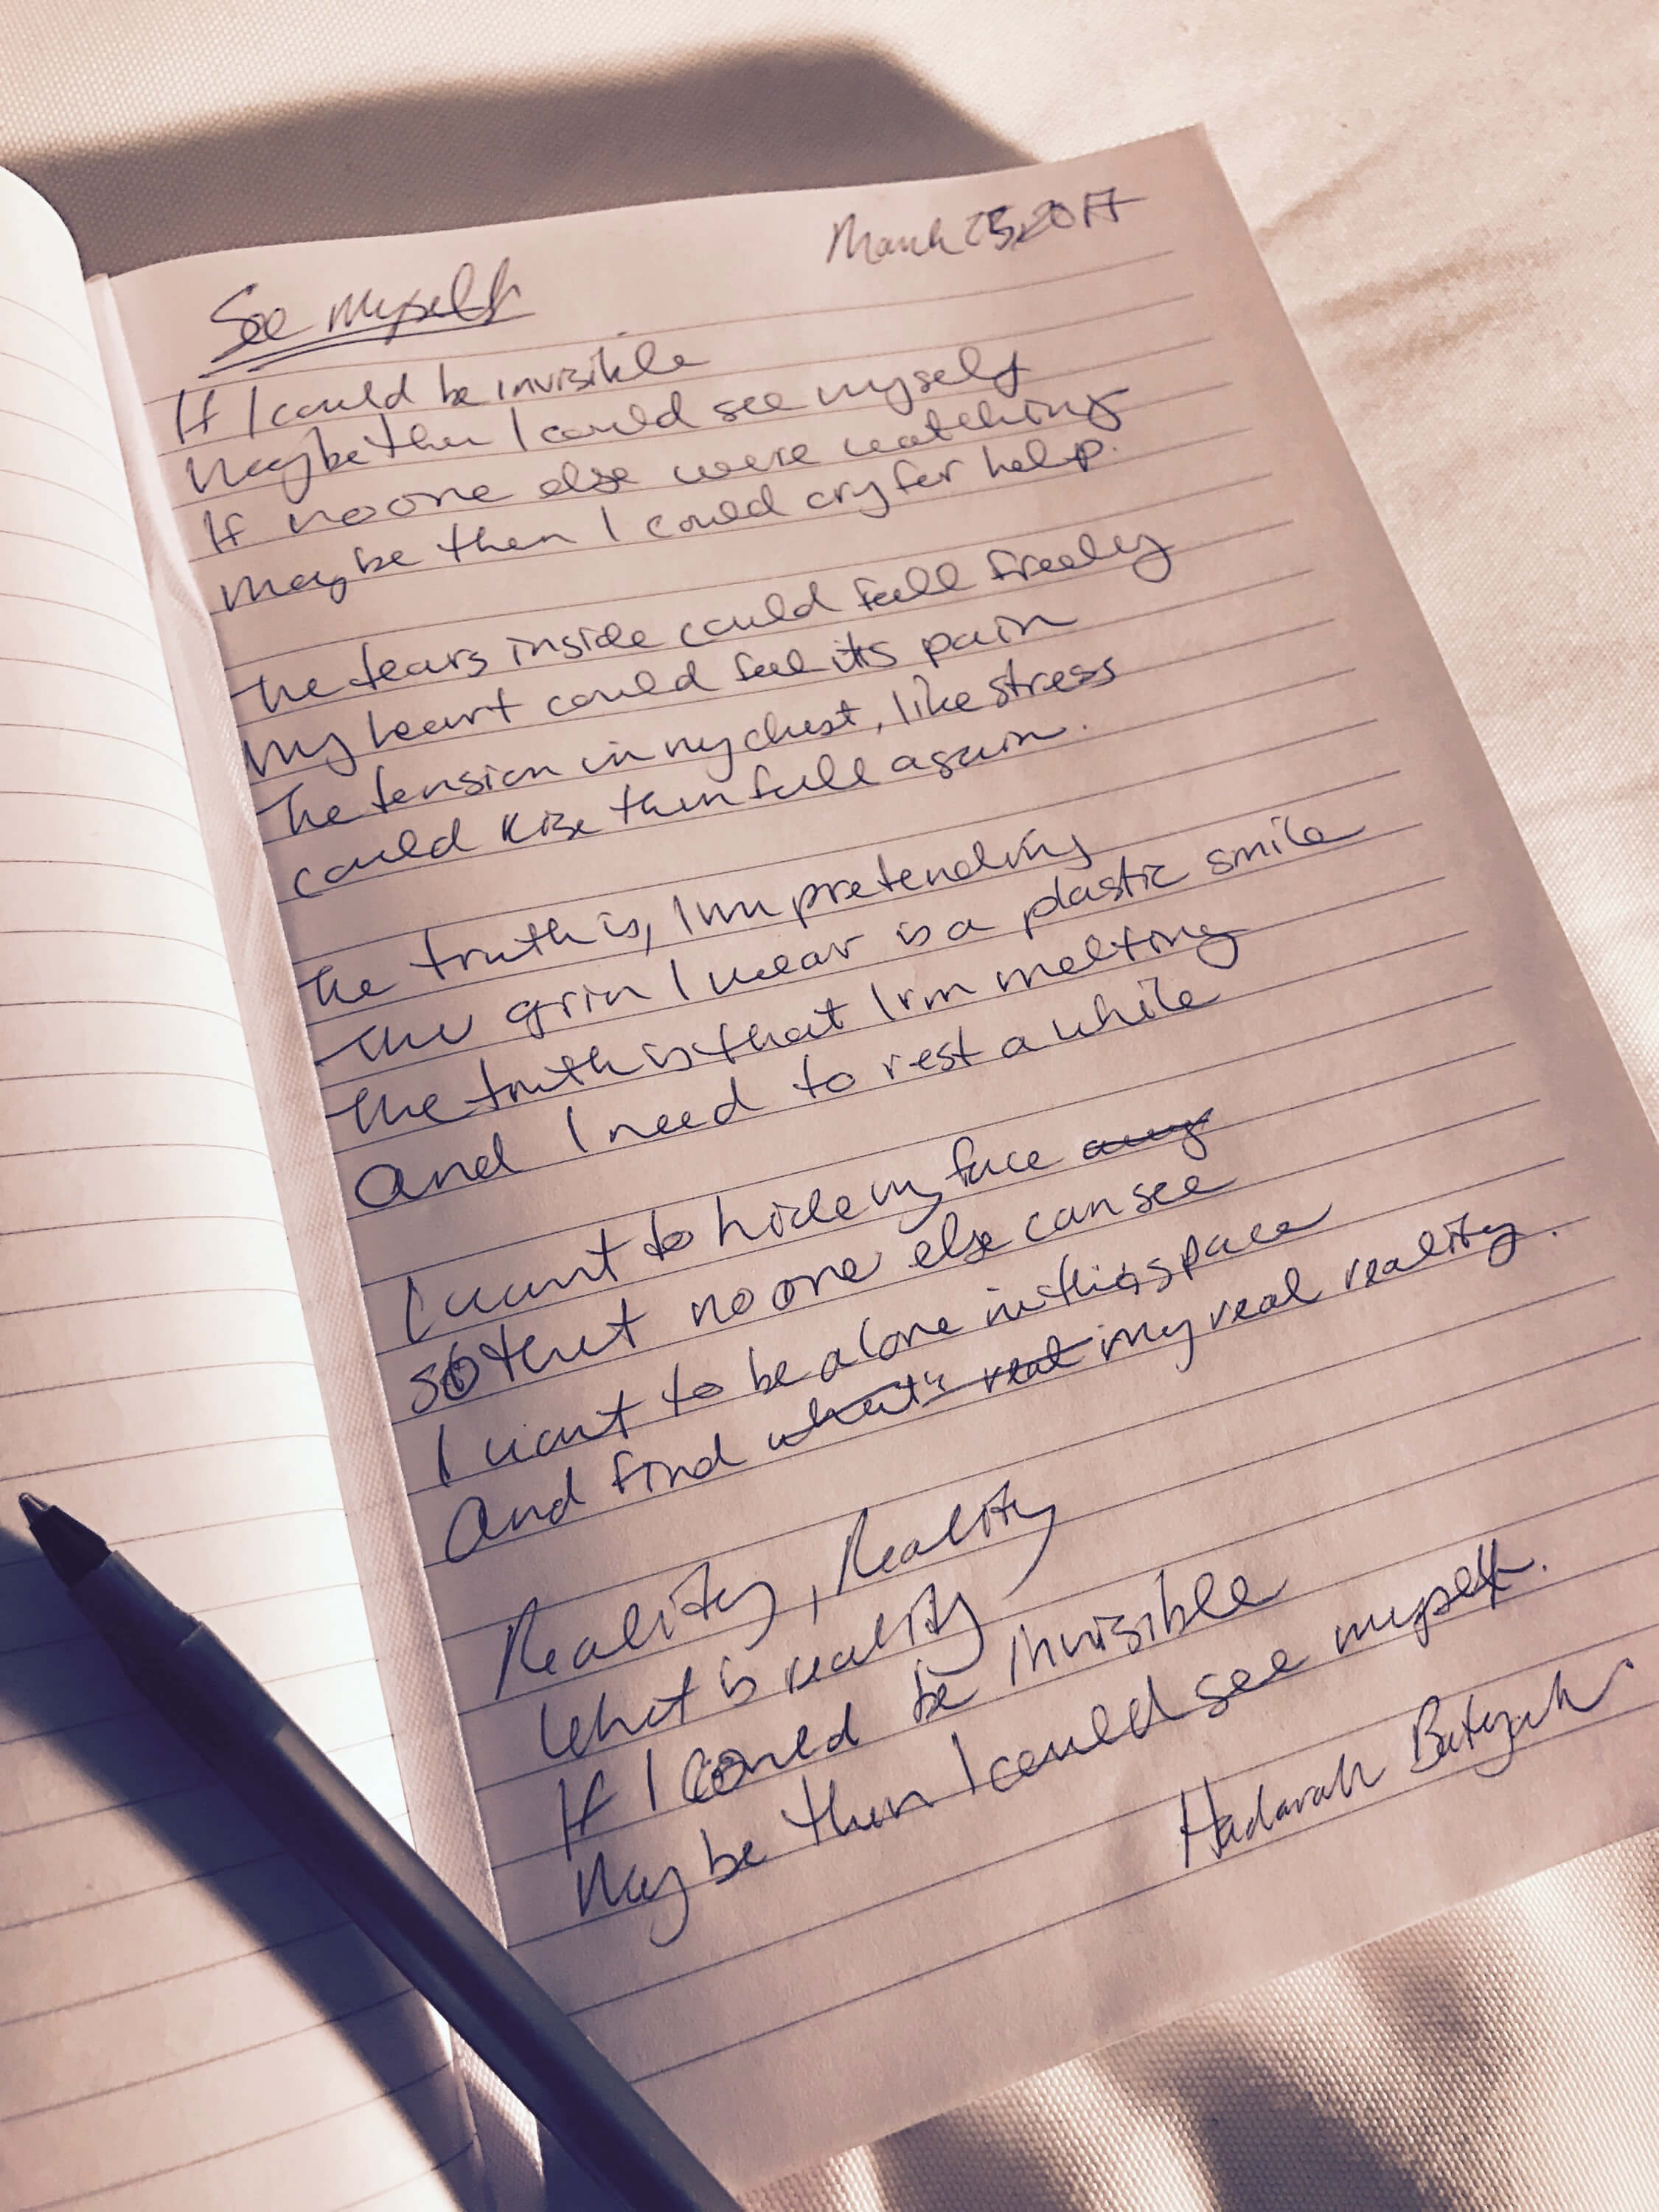 March 25, 2017
See Myself
If I could be invisible
Maybe then I could see myself
If no one else were watching
maybe then I could cry for help.
The tears inside could fall freely
My heart could feel its pain
The tension in my chest, like stress
could rise then fall again.
The truth is, I'm pretending
The grin I wear is a plastic smile
The truth is that I'm melting
And I need to rest a while
I want to hide my face
so that no one else can see
I want to be alone in this space
And find what's real my real reality.
Reality, Reality
What is reality
If I could be invisible
Maybe then I could see myself.
Hadarah Batyah